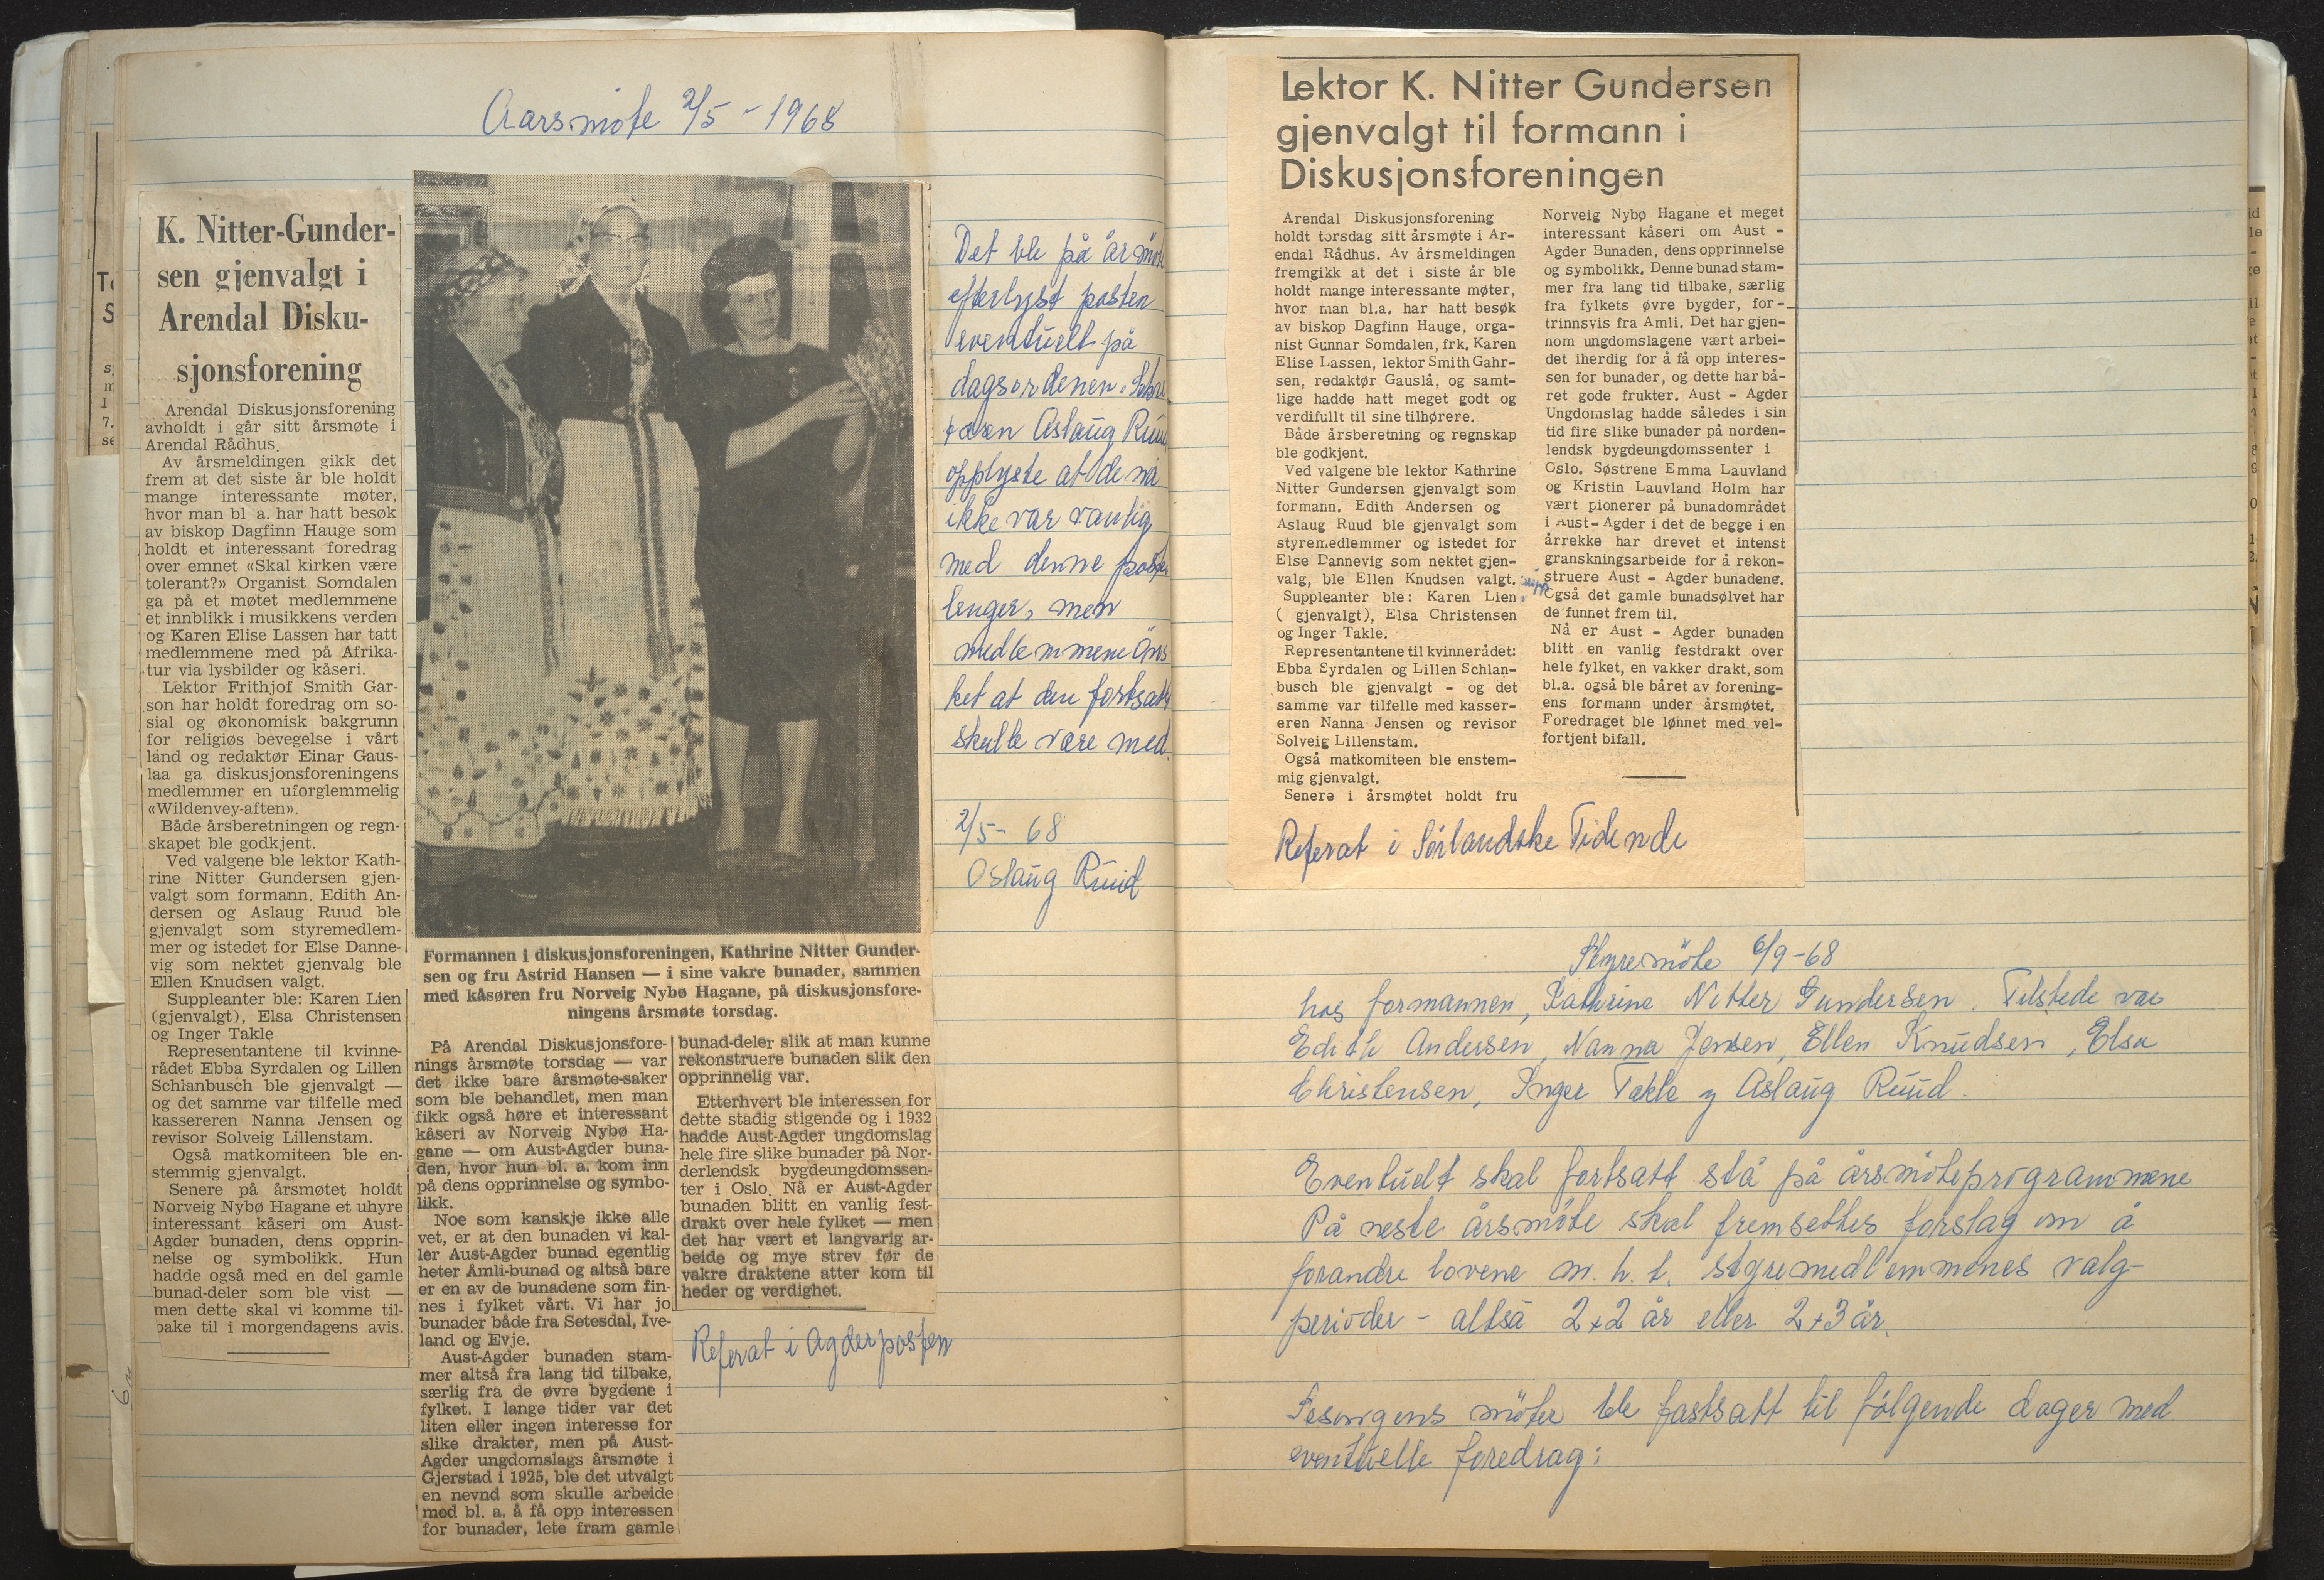 Aarsmöte 2/5 - 1968
K. Nitter-Gunder-
sen gjenvalgt i
Arendal Disku-
sjonsforening
Arendal Diskusjonsforening
avholdt i går sitt årsmøte i
Arendal Rådhus.
Av årsmeldingen gikk det
frem at det siste år ble holdt
mange interessante møter,
hvor man bl a. har hatt besøk
av biskop Dagfinn Hauge som
holdt et interessant foredrag
over emnet «Skal kirken være
tolerant?» Organist Somdalen
ga på et møtet medlemmene
et innblikk i musikkens verden
og Karen Elise Lassen har tatt
medlemmene med på Afrika-
tur via lysbilder og kåseri.
Lektor Frithjof Smith Gar-
son har holdt foredrag om so-
sial og økonomisk bakgrunn
for religiøs bevegelse i vårt
land og redaktør Einar Gaus-
laa ga diskusjonsforeningens
medlemmer en uforglemmelig
«Wildenvey-aften».
Både årsberetningen og regn-
skapet ble godkjent.
Ved valgene ble lektor Kath-
rine Nitter Gundersen gjen-
valgt som formann. Edith An-
dersen og Aslaug Ruud ble
gjenvalgt som styremedlem-
mer og istedet for Else Danne-
vig som nektet gjenvalg ble
Ellen Knudsen valgt.
Suppleanter ble: Karen Lien
(gjenvalgt), Elsa Christensen
og Inger Takle
Representantene til kvinne-
rådet Ebba Syrdalen og Lillen
Schlanbusch ble gjenvalgt —
og det samme var tilfelle med
kassereren Nanna Jensen og
revisor Solveig Lillenstam.
Også matkomiteen ble en-
stemmig gjenvalgt.
Senere på årsmøtet holdt
Norveig Nybø Hagane et uhyre
interessant kåseri om Aust-
Agder bunaden, dens opprin-
nelse og symbolikk. Hun
hadde også med en del gamle
bunad-deler som ble vist —
men dette skal vi komme til-
bake til i morgendagens avis.
Formannen i diskusjonsforeningen, Kathrine Nitter Gunder-
sen og fru Astrid Hansen — i sine vakre bunader, sammen
med kåsøren fru Norveig Nybø Hagane, på diskusjonsfore-
ningens årsmøte torsdag.
På Arendal Diskusjonsfore-
nings årsmøte torsdag — var
det ikke bare årsmøte-saker
som ble behandlet, men man
fikk også høre et interessant
kåseri av Norveig Nybø Ha-
gane — om Aust-Agder buna-
den, hvor hun bl. a. kom inn
på dens opprinnelse og symbo-
likk.
Noe som kanskje ikke alle
vet, er at den bunaden vi kal-
ler Aust-Agder bunad egentlig
heter Åmli-bunad og altså bare
er en av de bunadene som fin-
nes i fylket vårt. Vi har jo
bunader både fra Setesdal, Ive-
land og Evje.
Aust-Agder bunaden stam-
mer altså fra lang tid tilbake,
særlig fra de øvre bygdene i
fylket. I lange tider var det
liten eller ingen interesse for
slike drakter, men på Aust-
Agder ungdomslags årsmøte i
Gjerstad i 1925, ble det utvalgt
en nevnd som skulle arbeide
med bl. a. å få opp interessen
for bunader, lete fram gamle
bunad-deler slik at man kunne
rekonstruere bunaden slik den
opprinnelig var.
Etterhvert ble interessen for
dette stadig stigende og i 1932
hadde Aust-Agder ungdomslag
hele fire slike bunader på Nor-
derlendsk bygdeungdomssen-
ter i Oslo. Nå er Aust-Agder
bunaden blitt en vanlig fest-
drakt over hele fylket — men
det har vært et langvarig ar-
beide og mye strev før de
vakre draktene atter kom til
heder og verdighet.
Referat i Agderposten
Det ble på årsmöte
efterlyst posten
eventuelt på
dagsordenen. Sekre
tæren Aslaug Ruud
opplyste at de nå
ikke var vanlig
med denne posten
lenger, men
medlemmene öns
ket at den fortsatt
skulle være med.
2/5 - 68
Aslaug Ruud
Lektor K. Nitter Gundersen
gjenvalgt til formann i
Diskusjonsforeningen
Arendal Diskusjonsforening
holdt torsdag sitt årsmøte i Ar-
endal Rådhus. Av årsmeldingen
fremgikk at det i siste år ble
holdt mange interessante møter,
hvor man bl.a. har hatt besøk
av biskop Dagfinn Hauge, orga-
nist Gunnar Somdalen, frk. Karen
Elise Lassen, lektor Smith Gahr-
sen, redaktør Gauslå, og samt-
lige hadde hatt meget godt og
verdifullt til sine tilhørere.
Både årsberetning og regnskap
ble godkjent.
Ved valgene ble lektor Kathrine
Nitter Gundersen gjenvalgt som
formann. Edith Andersen og
Aslaug Ruud ble gjenvalgt som
styremedlemmer og istedet for
Else Dannevig som nektet gjen-
valg, ble Ellen Knudsen valgt.
Suppleanter ble: Karen Lien
( gjenvalgt), Elsa Christensen
og Inger Takle.
Representantene til kvinnerådet:
Ebba Syrdalen og Lillen Schlan-
busch ble gjenvalgt - og det
samme var tilfelle med kasser-
eren Nanna Jensen og revisor
Solveig Lillenstam.
Også matkomiteen ble enstem-
mig gjenvalgt.
Senere i årsmøtet holdt fru
Norveig Nybø Hagane et meget
interessant kåseri om Aust -
Agder Bunaden, dens opprinnelse
og symbolikk. Denne bunad stam-
mer fra lang tid tilbake, særlig
fra fylkets øvre bygder, for-
trinnsvis fra Amli. Det har gjen-
nom ungdomslagene vært arbei-
det iherdig for å få opp interes-
sen for bunader, og dette har bå-
ret gode frukter. Aust - Agder
Ungdomslag hadde således i sin
tid fire slike bunader på norden-
lendsk bygdeungdomssenter i
Oslo. Søstrene Emma Lauvland
og Kristin Lauvland Holm har
vært pionerer på bunadområdet
i Aust-Agder i det de begge i en
årrekke har drevet et intenst
granskningsarbeide for å rekon-
struere Aust - Agder bunadene.
Også det gamle bunadsølvet har
de funnet frem til.
Nå er Aust - Agder bunaden
blitt en vanlig festdrakt over
hele fylket, en vakker drakt, som
bl.a. også ble båret av forening-
ens formann under årsmøtet.
Foredraget ble lønnet med vel-
fortjent bifall.
Referat i Sörlandske Tidende
Styremöte 6/9-68
hos formannen, Kathrine Nitter Gundersen. Tilstede var
Edith Andersen, Nanna Jensen, Ellen Knudsen, Elsa
Christensen, Inger Takle og Aslaug Ruud.
Eventuelt skal fortsatt stå på årsmöteprogrammene
På neste årsmöte skal fremsettes forslag om å
forandre lovene m.h.t. styremedlemmenes valg-
perioder - altså 2+2 år eller 2+3 år.
Sesongens möter ble fastsatt til fölgende dager med
eventuelle foredrag: